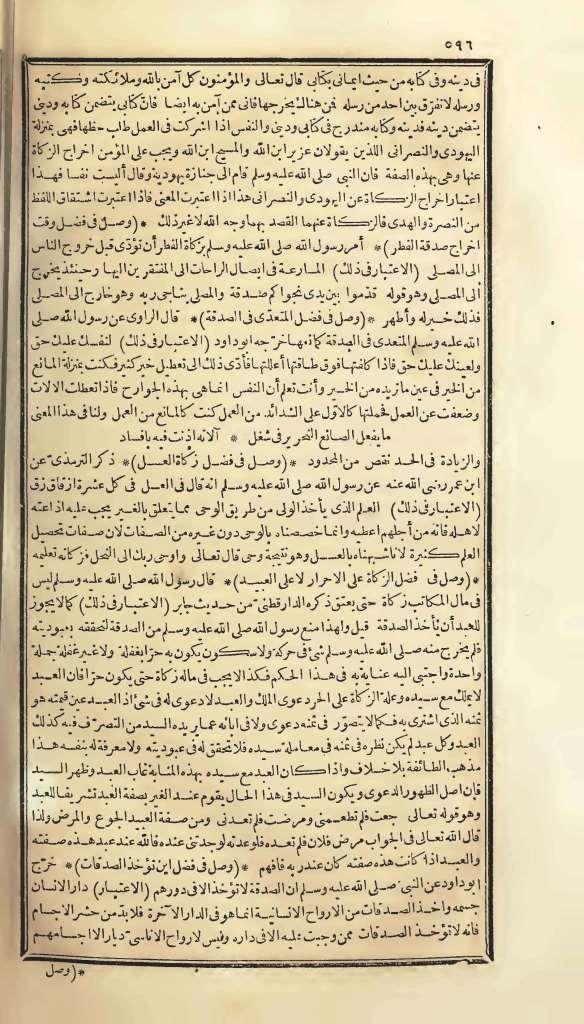 ٥٩٦
فى دينه وفى كتابه من حيث ايمانى بكتابى قال تعالى والمؤمنون كل آمن بالله وملائكته وكتبه
ورسله لانفرّق بين احد من رسله فمن هنالك يخرجها فانى ممن آمن به ايضا فان كتابى يتضمن كتابه ودينى
يتضمن دينه فدينه وكتابه مندرج فى كتابى ودينى والنفس اذا اشركت فى العمل طلب حظها فهى بمنزلة
اليهودى والنصرانى اللذين يقولان عزير ابن الله والمسيح ابن الله ويجب على المؤمن اخراج الزكاة
عنها وهى بهذه الصفة فان النبى صلى الله عليه وسلم قام الى جنازة يهودية وقال أليست نفسا فهذا
اعتبار اخراج الزكاة عن اليهودى والنصرانى هذا اذا اعتبرت المعنى فاذا اعتبرت اشتقاق اللفظ
من النصرة والهدى فالزكاة عنهما القصد بهما وجه الله لا غير ذلك *(وصل فى فضل وقت
اخراج صدقة الفطر)* أمر رسول الله صلى الله عليه وسلم بزكاة الفطر أن تؤدّى قبل خروج الناس
الى المصلى (الاعتبار فى ذلك) المسارعة فى ايصال الراحات الى المفتقرين اليها وحينئذ يخرج
الى المصلى وهو قوله قدّموا بين يدى نجواكم صدقة والمصلى يناجى ربه وهو خارج الى المصلى
فذلك خير له وأطهر *(وصل فى فضل المتعدّى فى الصدقة)* قال الراوى عن رسول الله صلى
الله عليه وسلم المتعدى فى الصدقة كمانعها خرّجه ابوداود (الاعتبار فى ذلك) لنفسك عليك حق
ولعينك عليك حق فاذا كلفتها فوق طاقتها أعللتها فأدّى ذلك الى تعطيل خير كثير فكنت بمنزلة المانع
من الخير فى عين ما تريده من الخير وأنت تعلم أن النفس انما هى بهذه الجوارح فاذا تعطلت الآلات
وضعفت عن العمل فحملتها كالاول على الشدائد من العمل كنت كالمانع من العمل ولنا فى هذا المعنى
ما يفعل الصانع النحرير فى شغل * آلاته اذنت فيه بافساد
والزيادة فى الحد نقص من المحدود *(وصل فى فضل زكاة العسل)* ذكر الترمذى عن
ابن عمر رضى الله عنه عن رسول الله صلى الله عليه وسلم انه قال فى العسل فى كل عشرة ازقاق زق
(الاعتبار فى ذلك) العلم الذى يأخذ الولى من طريق الوحى مما يتعلق بالغير يجب عليه اذاعته
لاهله فانه من أجلهم اعطيه وانما خصصناه بالوحى دون غيره من الصفات لان صفات تحصيل
العلم كثيرة لانا شبهناه بالعسل وهو نتيجة وحى قال تعالى واوحى ربك الى النحل فزكاته تعليمه
*(وصل فى فضل الزكاة على الاحرار لا على العبيد)* قال رسول الله صلى الله عليه وسلم ليس
فى مال المكاتب زكاة حتى يعتق ذكره الدارقطنى من حديث جابر (الاعتبار فى ذلك) كما لا يجوز
للعبد أن يأخذ الصدقة قيل ولهذا منع رسول الله صلى الله عليه وسلم من الصدقة لتحققه بعبوديته
فلم يخرج منه صلى الله عليه وسلم شئ فى حركة ولا سكون يكون به حرّا بغفلة ولا غير غفلة جملة
واحدة واجتبى اليه عناية به فى هذا الحكم فكذا لا يجب فى ماله زكاة حتى يكون حرّا فان العبد
لا يملك مع سيده وعلة الزكاة على الحر دعوى الملك والعبد لا دعوى له فى شئ اذ العبد عين قيمته هو
ثمنه الذى اشترى به فكما لا يتصوّر فى ثمنه دعوى ولا فى ابائه عما يريده السيد من التصرّف فيه كذلك
العبد وكل عبد لم يكن نظره فى ثمنه فى معاملة سيده فلا تحقق له فى عبوديته ولا معرفة له بنفسه هذا
مذهب الطائفة بلا خلاف واذا كان العبد مع سيده بهذه المثابة غاب العبد وظهر السيد
فان اصل الظهور الدعوى ويكون السيد فى هذا الحال يقوم عند الغير بصفة العبد تشريفا للعبد
وهو قوله تعالى جعت فلم تطعمنى ومرضت فلم تعدنى ومن صفة العبيد الجوع والمرض ولذا
قال الله تعالى فى الجواب مرض فلان فلم تعده فلو عدته لوجدتنى عنده فالله عند عبد هذه صفته
والعبد اذا كانت هذه صفته كان عند ربه فافهم *(وصل فى فضل اين تؤخذ الصدقات)* خرّج
ابوداود عن النبى صلى الله عليه وسلم ان الصدقة لا تؤخذ الا فى دورهم (الاعتبار) دار الانسان
جسمه واخذ الصدقات من الارواح الانسانية انما هو فى الدار الآخرة فلا بدّ من حشر الاجسام
فانه لا تؤخذ الصدقات ممن وجبت عليه الا فى داره وليس لارواح الاناسى ديار الا اجسامهم
*(وصل